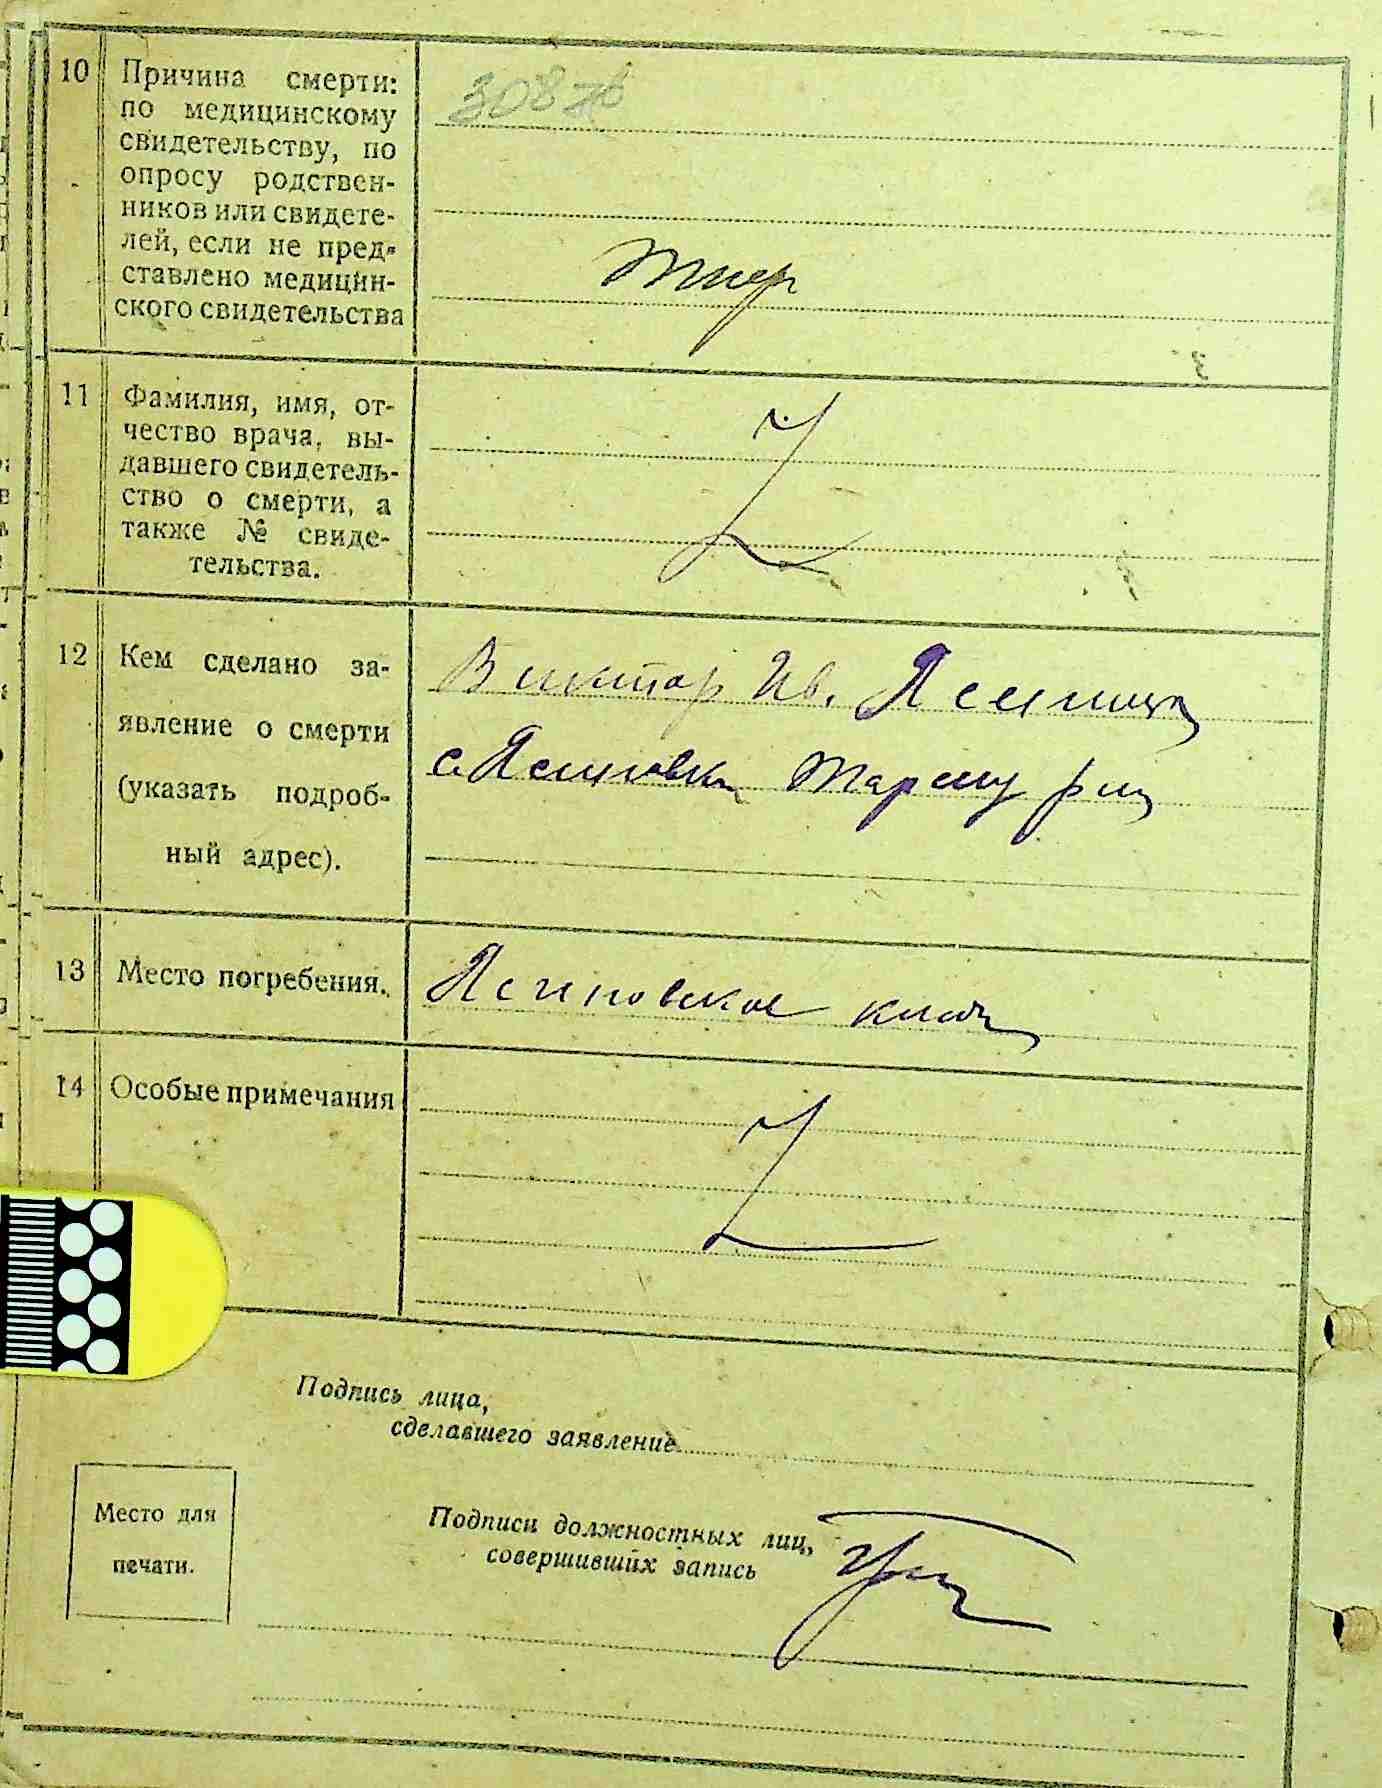 10 Причина смерти:
по медицинскому
свидетельству, по
опросу родствен-
ников или свидете-
лей, если не пред-
ставлено медицин-
ского свидетельства
308
11 Фамилия, имя, от-
чество врача, вы-
давшего свидетель-
ство о смерти, а
также № свиде-
тельства.
12 Кем сделано за-
явление о смерти
(указать подроб-
ный адрес).
Виктор Ив.
с.
13 Место погребения.
Ясиновское
14 Особые примечания
Подпись лица,
сделавшего заявление
Место для
печати.
Подписи должностных лиц,
совершивших запись